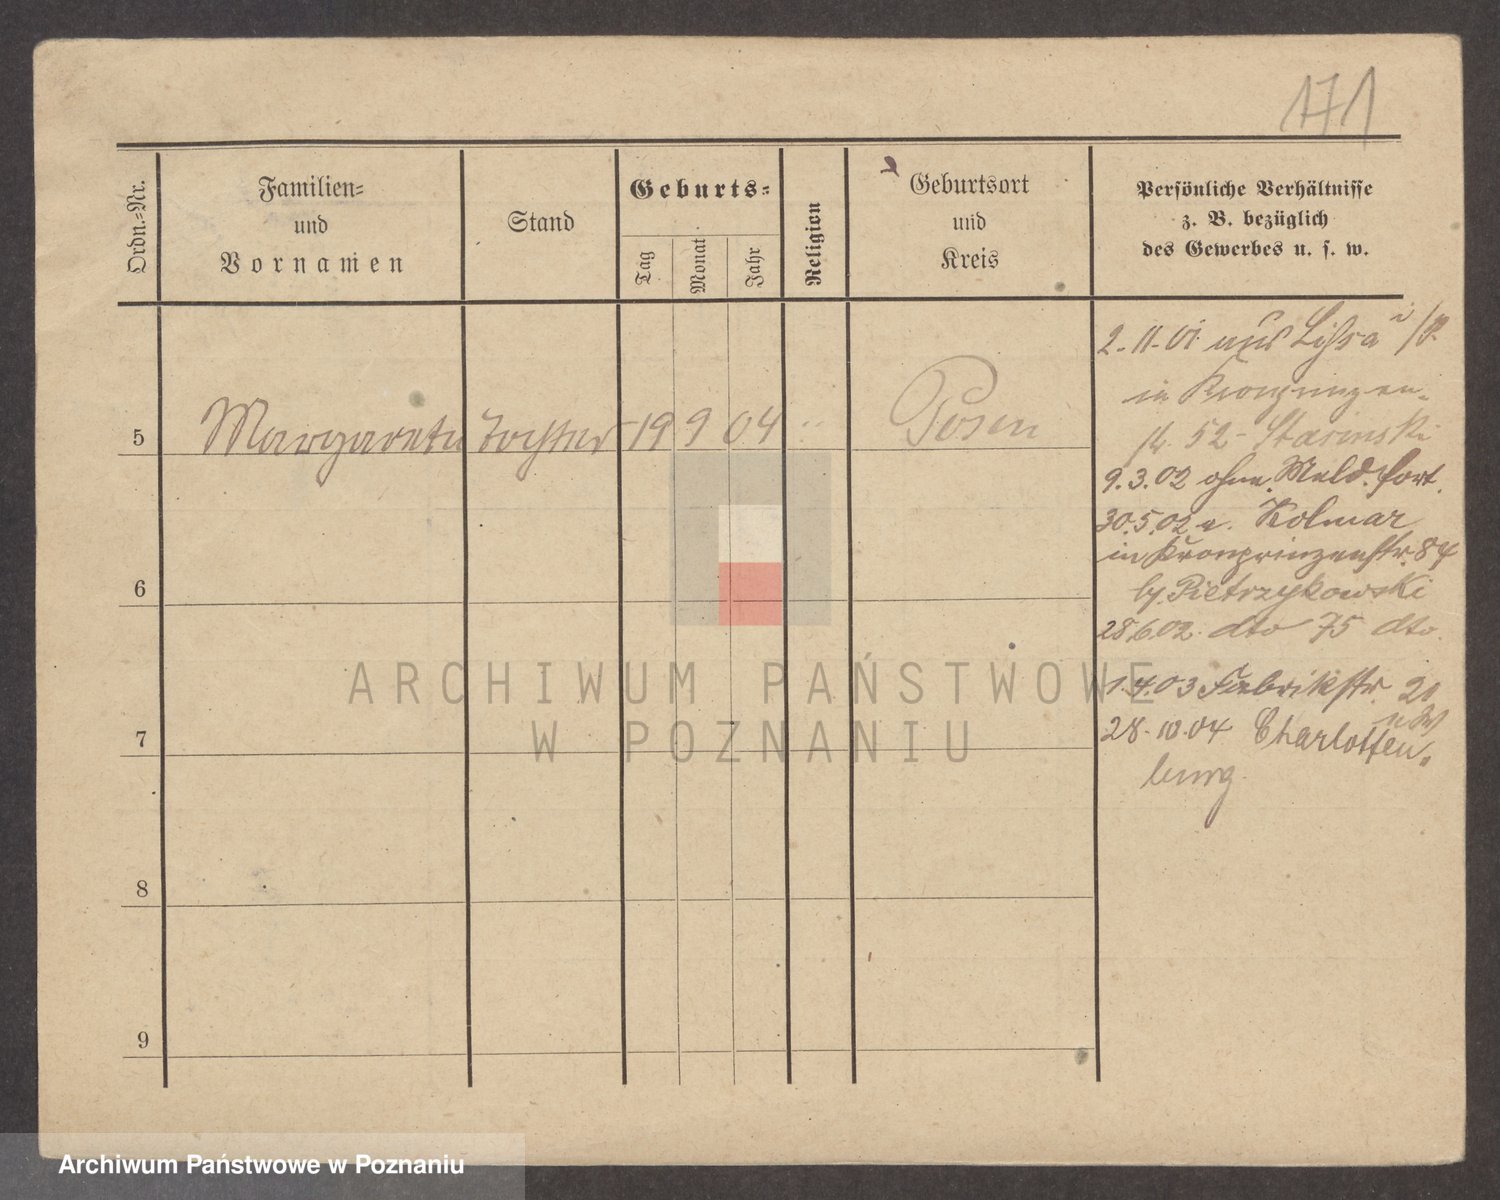 171
Ordn.-Nr.
Familien-
und
Vornamen
Stand
Geburts-
Tag
Monat
Jahr
Religion
Geburtsort
und
Kreis
Persönliche Verhältnisse
z. B. bezüglich
des Gewerbes u. s. w.
5 Margarete Tochter 19 9 04 Posen
6
7
8
9
2.11.01 aus Lissa i/P.
in Kronprinzen-
str. 52 Stasinski
9.3.02 ohne Meld. fort.
30.5.02 v. Kolmar
in Kronprinzenstr. 84
by Pietrzykowski
28.6.02. dto 75 dto.
1.4.03 Fabrikstr. 20
28.10.04 Charlotten-
burg
ARCHIWUM PAŃSTWOWE
W POZNANIU
Archiwum Państwowe w Poznaniu